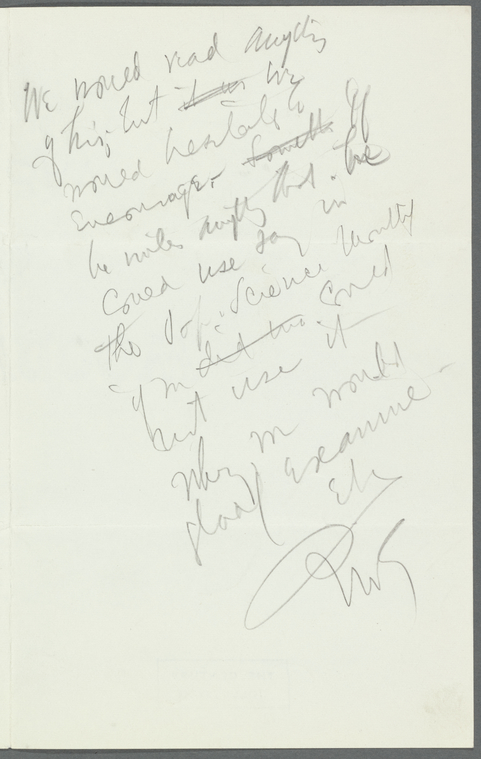 We would read anything
of his, but it is we
would hesitate to
encourage. Someth If
he writes anything that he
could use say in
the Pop. Science Monthly
if
not use it
Why would
glad examine